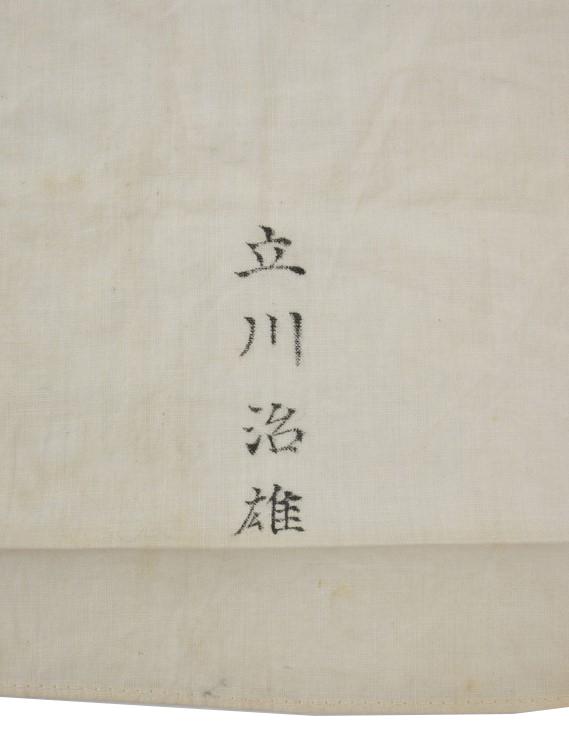 立川治雄